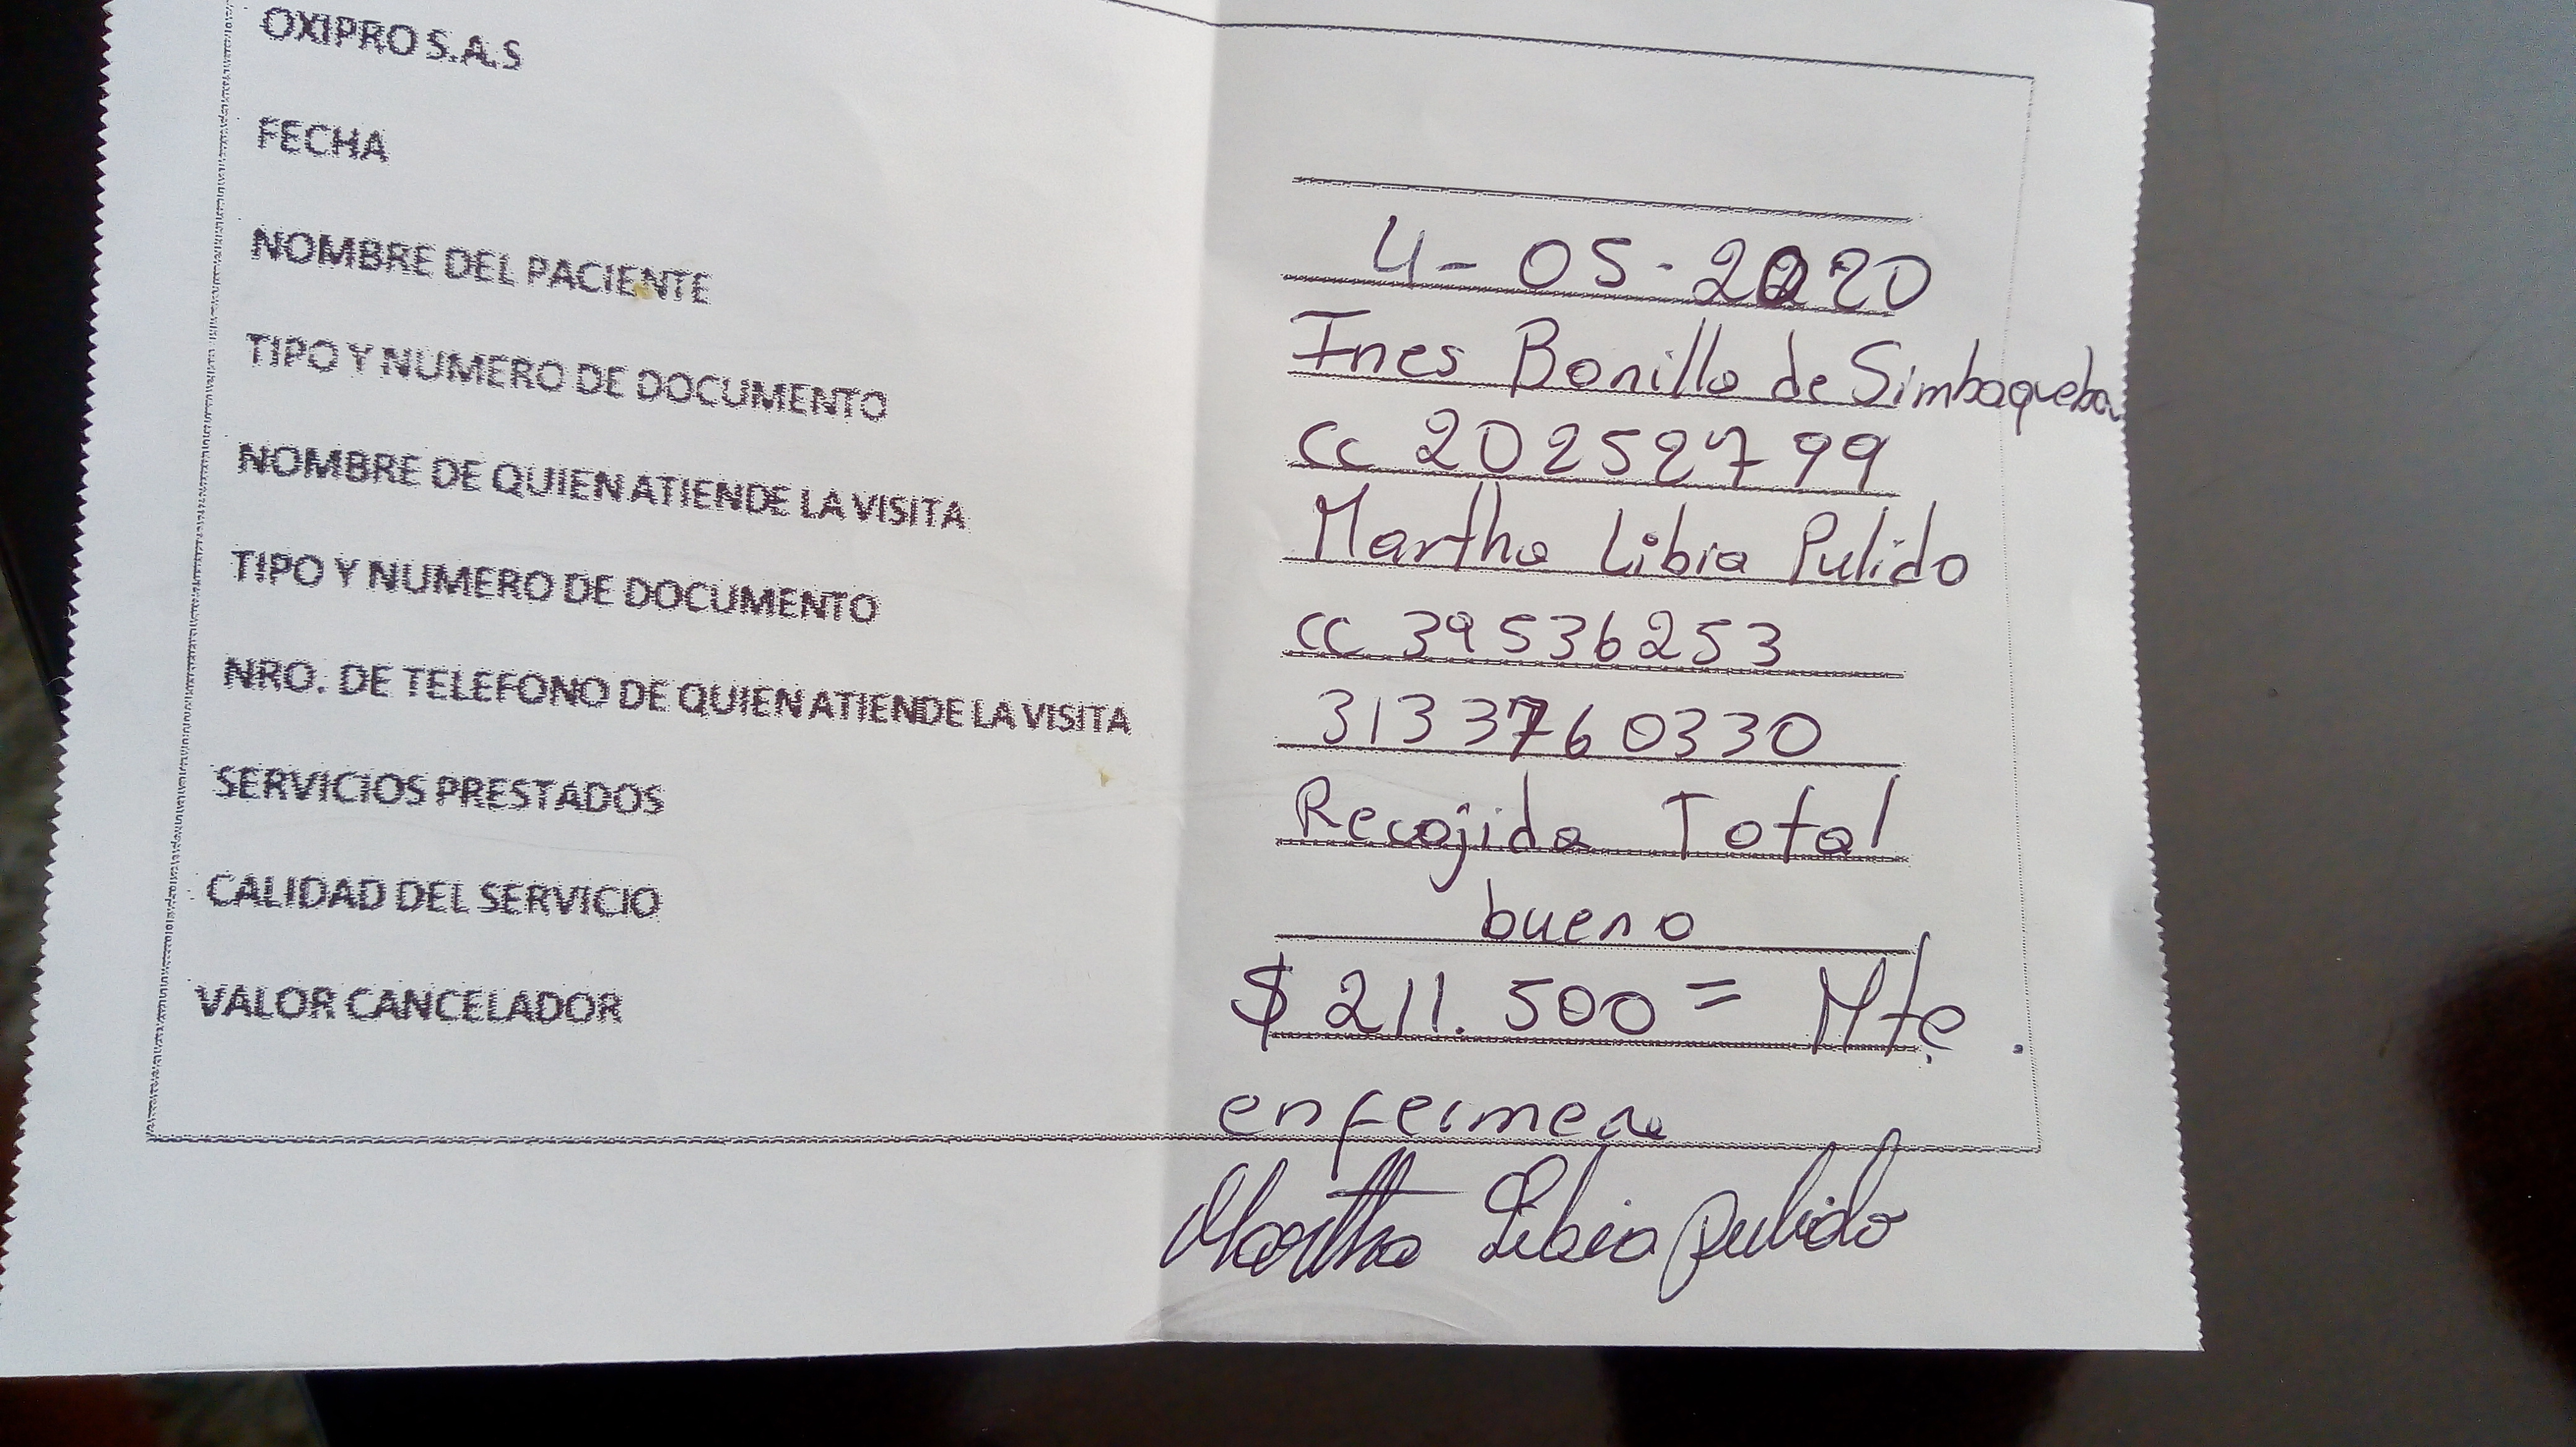 OXIPRO S.A.S
FECHA 4-05-2020
NOMBRE DEL PACIENTE Ines Bonilla de Simbaqueba
TIPO Y NUMERO DE DOCUMENTO cc 202529799
NOMBRE DE QUIEN ATIENDE LA VISITA Martha Libia Pulido
TIPO Y NUMERO DE DOCUMENTO cc 39536253
NRO. DE TELEFONO DE QUIEN ATIENDE LA VISITA 3133760330
SERVICIOS PRESTADOS Recojida Total
CALIDAD DEL SERVICIO bueno
VALOR CANCELADOR $ 211.500= Mte.
enfermera
Martha Libia Pulido